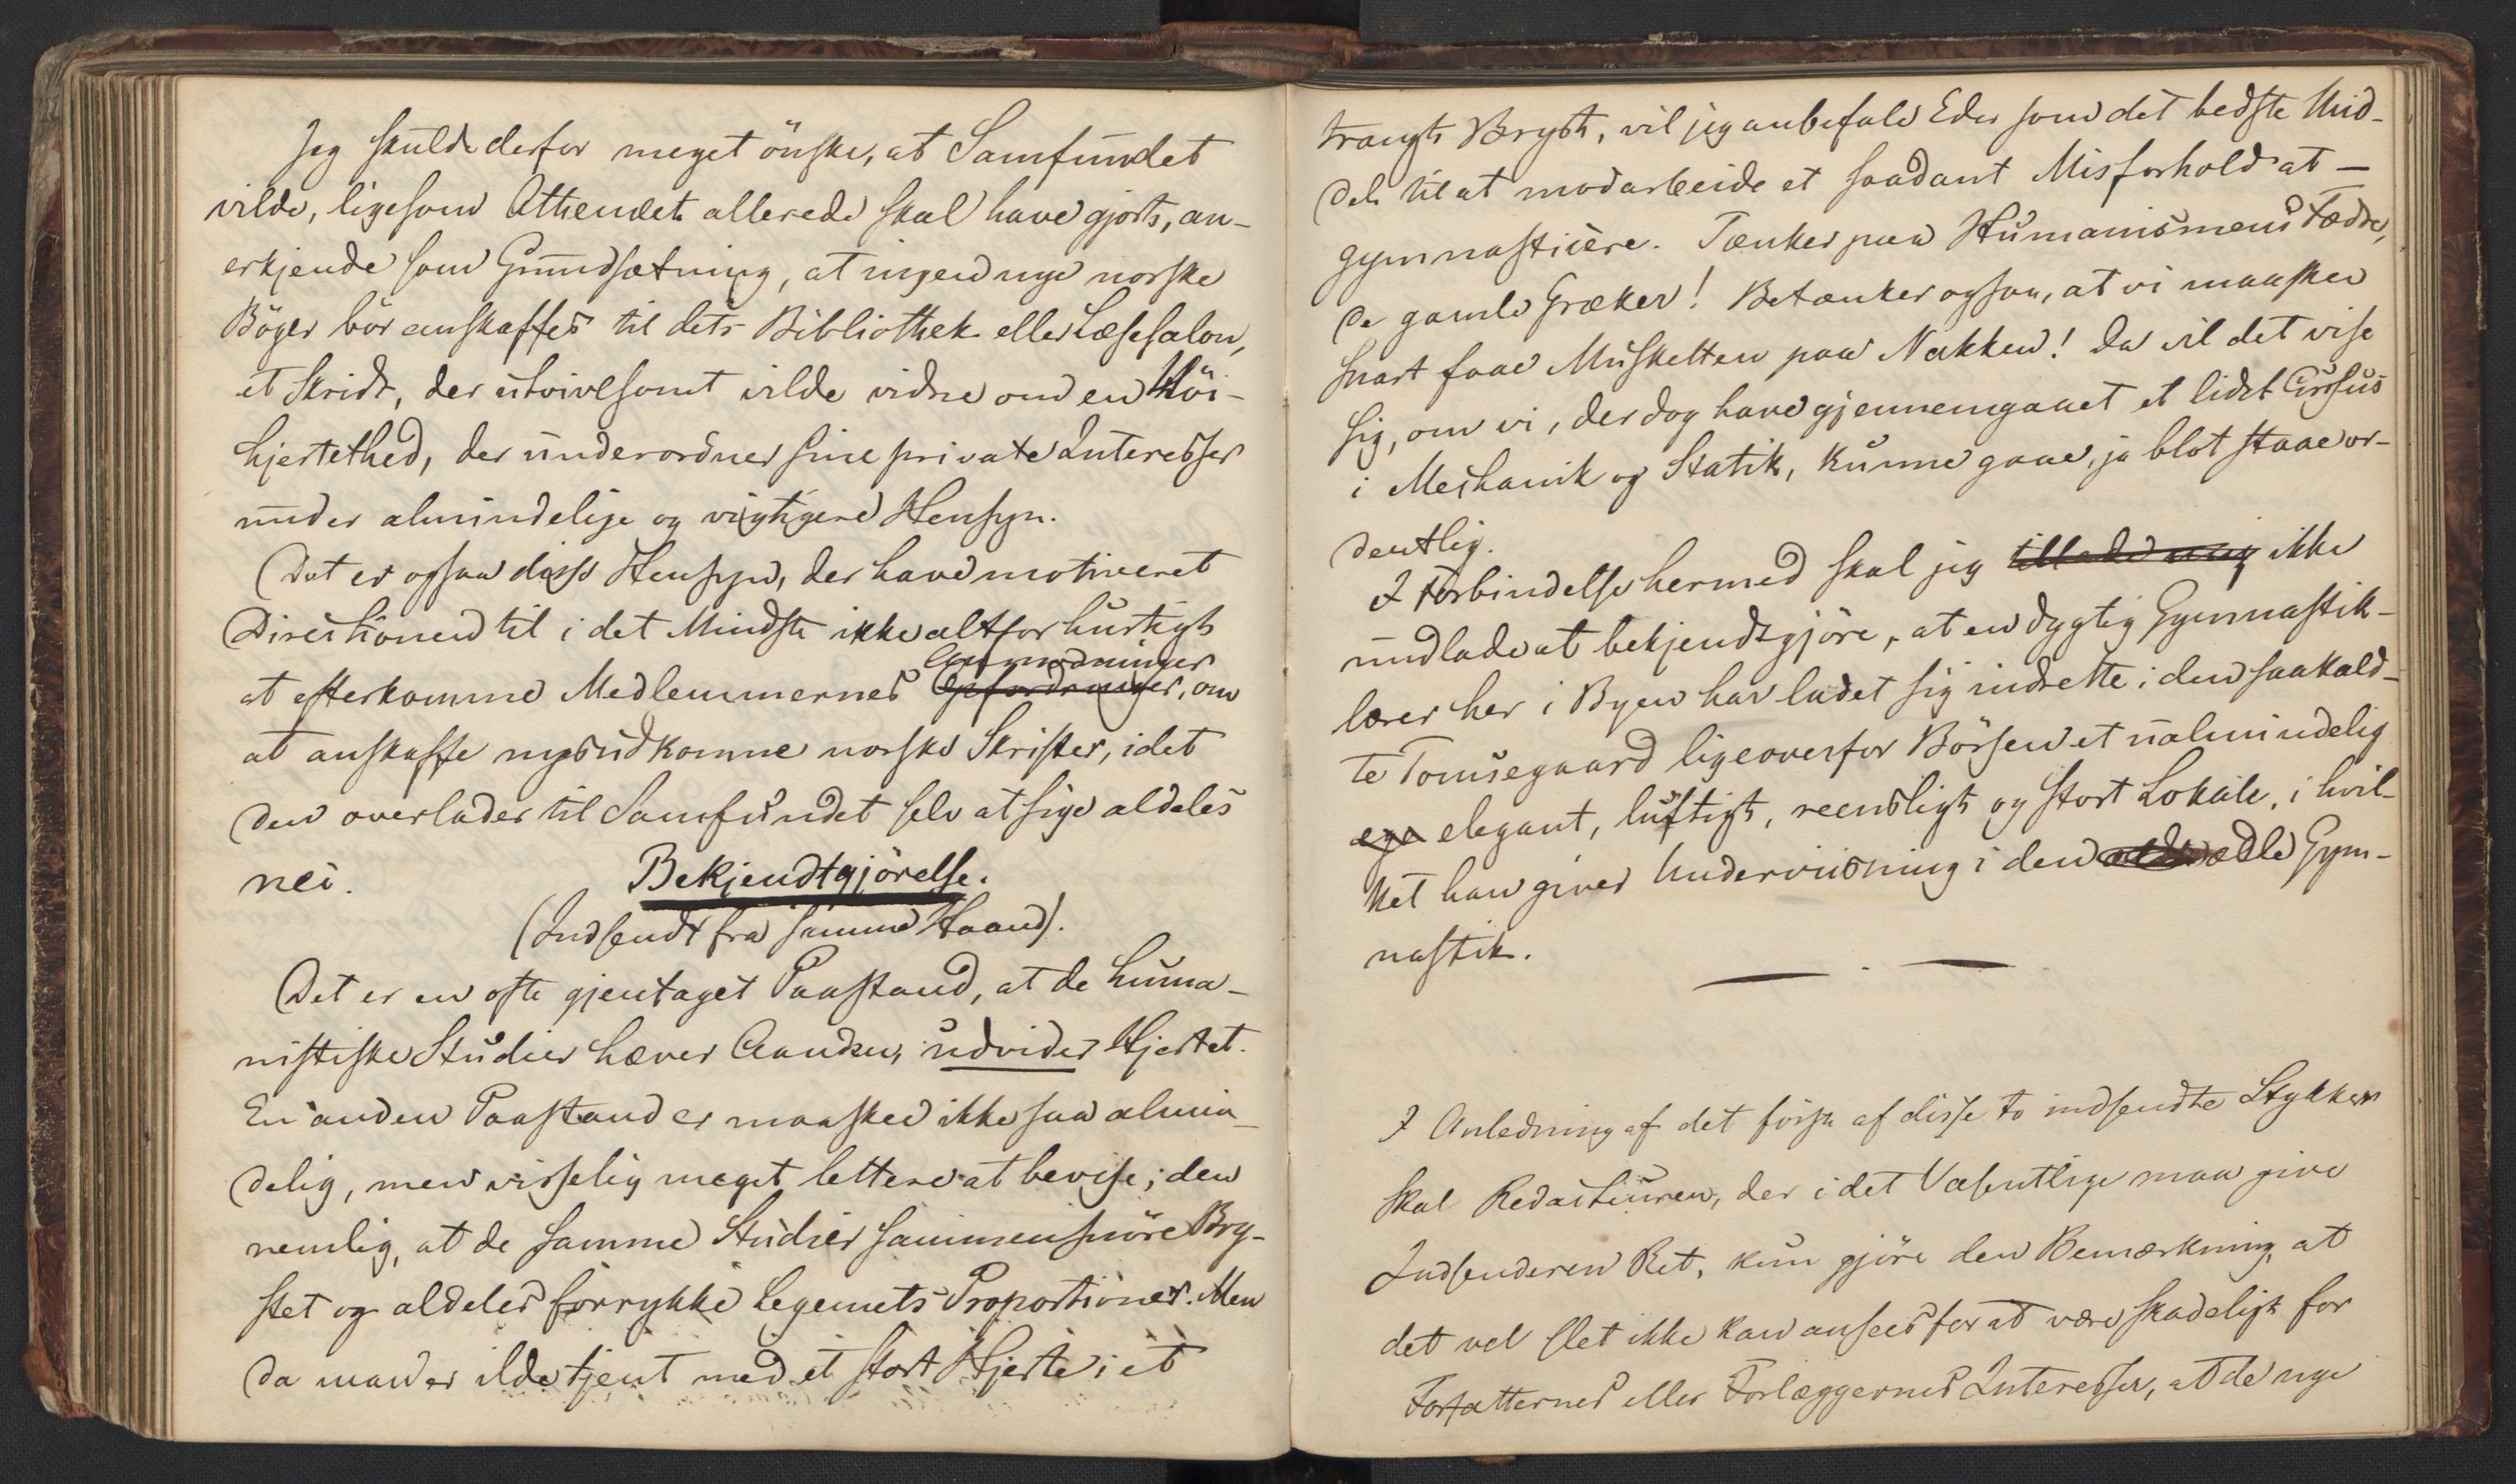 Jeg skulde derfor meget önske, at Samfundet
vilde, ligesom Athenæet allerede skal have gjort, an-
erkjende som Grundsætning, at ingen nye norske
Böger bör anskaffes til dets Bibliothek eller Læsesalon,
et Skridt, der utvivlsomt vilde vidne om en Höi-
hjertethed, der underordner sine private Interesser
under almindelige og vigtigere Hensyn.
Det er ogsaa disse Hensyn, der have motiveret
Directionen til i det Mindste ikke altfor hurtigt
Anmodninger
at efterkomme Medlemmernes Opfordringer, om
at anskaffe nysudkomne norske Skrifter, idet
den overlader til Samfundet selv at sige aldeles
nei.
Bekjendtgjörelse.
(Indsendt fra samme Haand).
Det er en ofte gjentaget Paastand, at de huma-
nistiske Studier hæver Aanden, udvider Hjertet.
En anden Paastand er maaskee ikke saa almin-
delig, men visselig meget lettere at bevise; den
nemlig, at de samme Studier sammensnöre Bry-
stet og aldeles forrykke Legemets Proportioner. Men
da man er ilde tjent med et stort Hjerte i et
trangt Bryst, vil jeg anbefale Eder som det bedste Mid-
del til at modarbeide et saadant Misforhold at —
gymnasticere. Tænker paa Humanismens Fædre,
de gamle Græker! Betænker ogsaa, at vi maaskee
snart faae Musketten paa Nakken! Da vil det vise
sig, om vi, der dog have gjennemgaaet et lidet Cursus
i Mechanik og Statik, kunne gaae, ja blot staae or-
dentlig.
I Forbindelse hermed skal jeg tillade mig ikke
undlade at bekjendtgjöre, at en dygtig Gymnastik-
lærer her i Byen har ladet sig indrette i den saakald-
te Tomsegaard ligeoverfor Börsen et ualmindelig
ege elegant, luftigt, reensligt og stort Lokale, i hvil-
ket han giver Underviisning i den ædle Gym-
nastik.
I Anledning af det förste af disse to indsendte Stykker
skal Redacteuren, der i det Væsentlige maa give
Indsenderen Ret, kun gjöre den Bemærkning, at
det vel slet ikke kan ansees for at være skadeligt for
Forfatternes eller Forlæggernes Interesser, at de nye